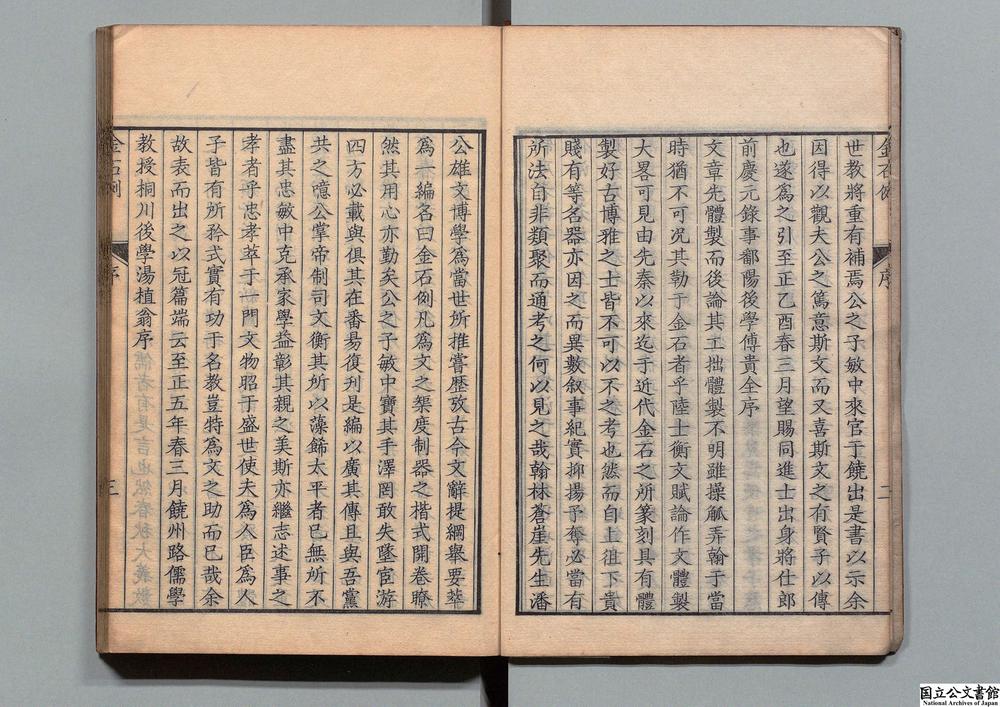 世教將重有補焉公之子敏中來官于饒出是書以示余
因得以觀夫公之篤意斯文而又喜斯文之有賢子以傳
也遂爲之引至正乙酉春三月望賜同進士出身將仕郎
前慶元錄事鄱陽後學傅貴全序
文章先體製而後論其工拙體製不明雖操觚弄翰于當
時猶不可况其勒于金石者乎陸士衡文賦論作文體製
大畧可見由先秦以來迄于近代金石之所篆刻具有體
製好古博雅之士皆不可以不之考也然而自上徂下貴
賤有等名器亦因之而異數叙事紀實抑揚予奪必當有
所法自非類聚而通考之何以見之哉翰林蒼崖先生潘
序
二
公雄文博學爲當世所推嘗歷攷古今文辭提綱舉要萃
爲一編名曰金石例凡爲文之榘度制器之楷式開卷瞭
然其用心亦勤矣公之子敏中寶其手澤罔敢失墜宦游
四方必載與俱其在番昜復刋是編以廣其傳且與吾黨
共之噫公掌帝制司文衡其所以藻餙太平者已無所不
盡其忠敏中克承家學益彰其親之美斯亦繼志述事之
孝者乎忠孝萃于一門文物昭于盛世使夫爲人臣爲人
子皆有所矜式實有功于名教豈特爲文之助而已哉余
故表而出之以冠篇端云至正五年春三月饒州路儒學
教授桐川後學湯植翁序
金石例
序
三
国立公文書館
National Archives of Japan